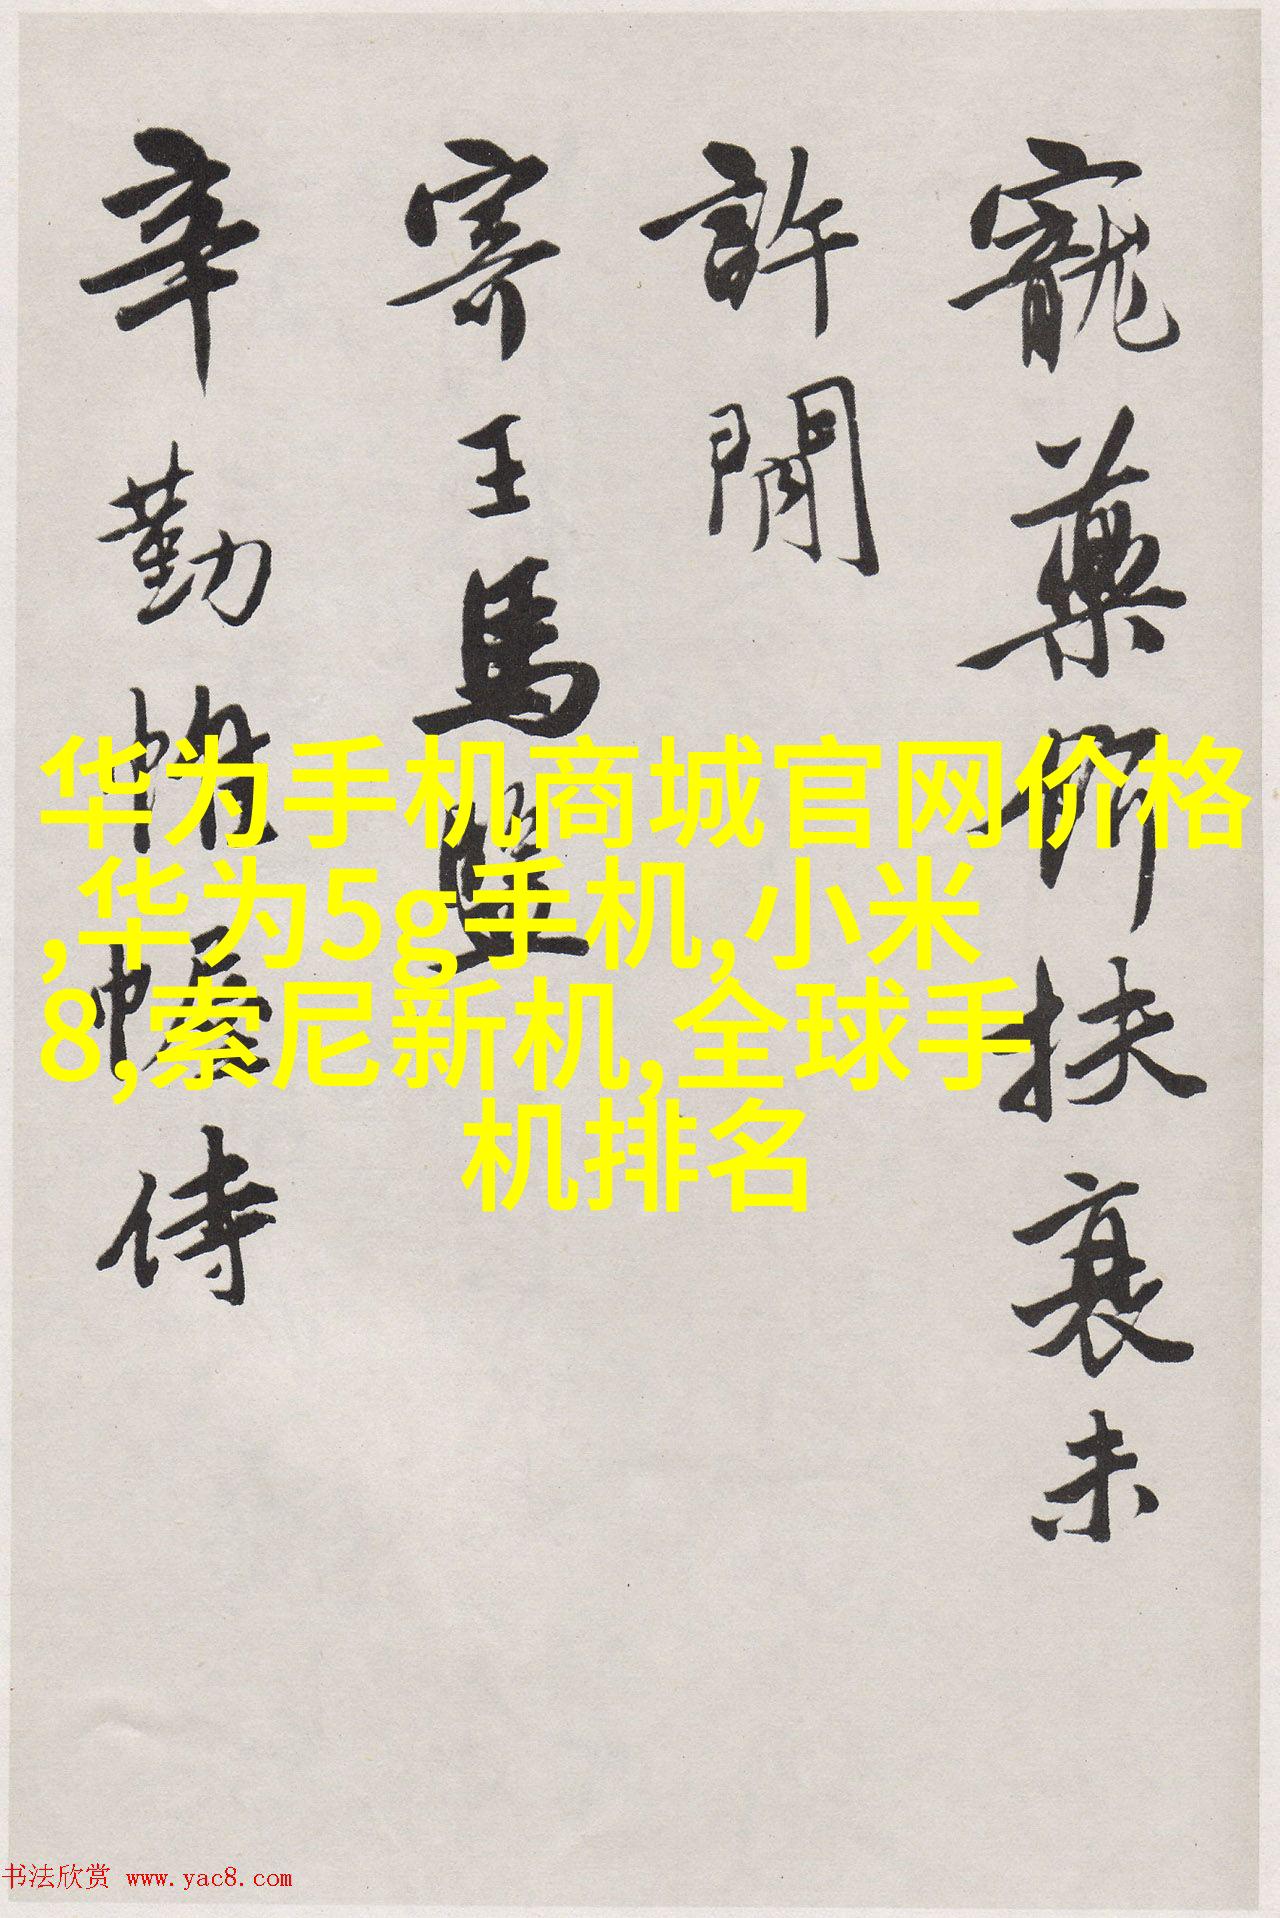 寵藥扶衰未
許閒
寄王馬監
辛勤帷幄侍
华为手机商城官网价格
,华为5g手机,小米
8,索尼新机,全球手
机排名
书法欣赏 www.yac8.com